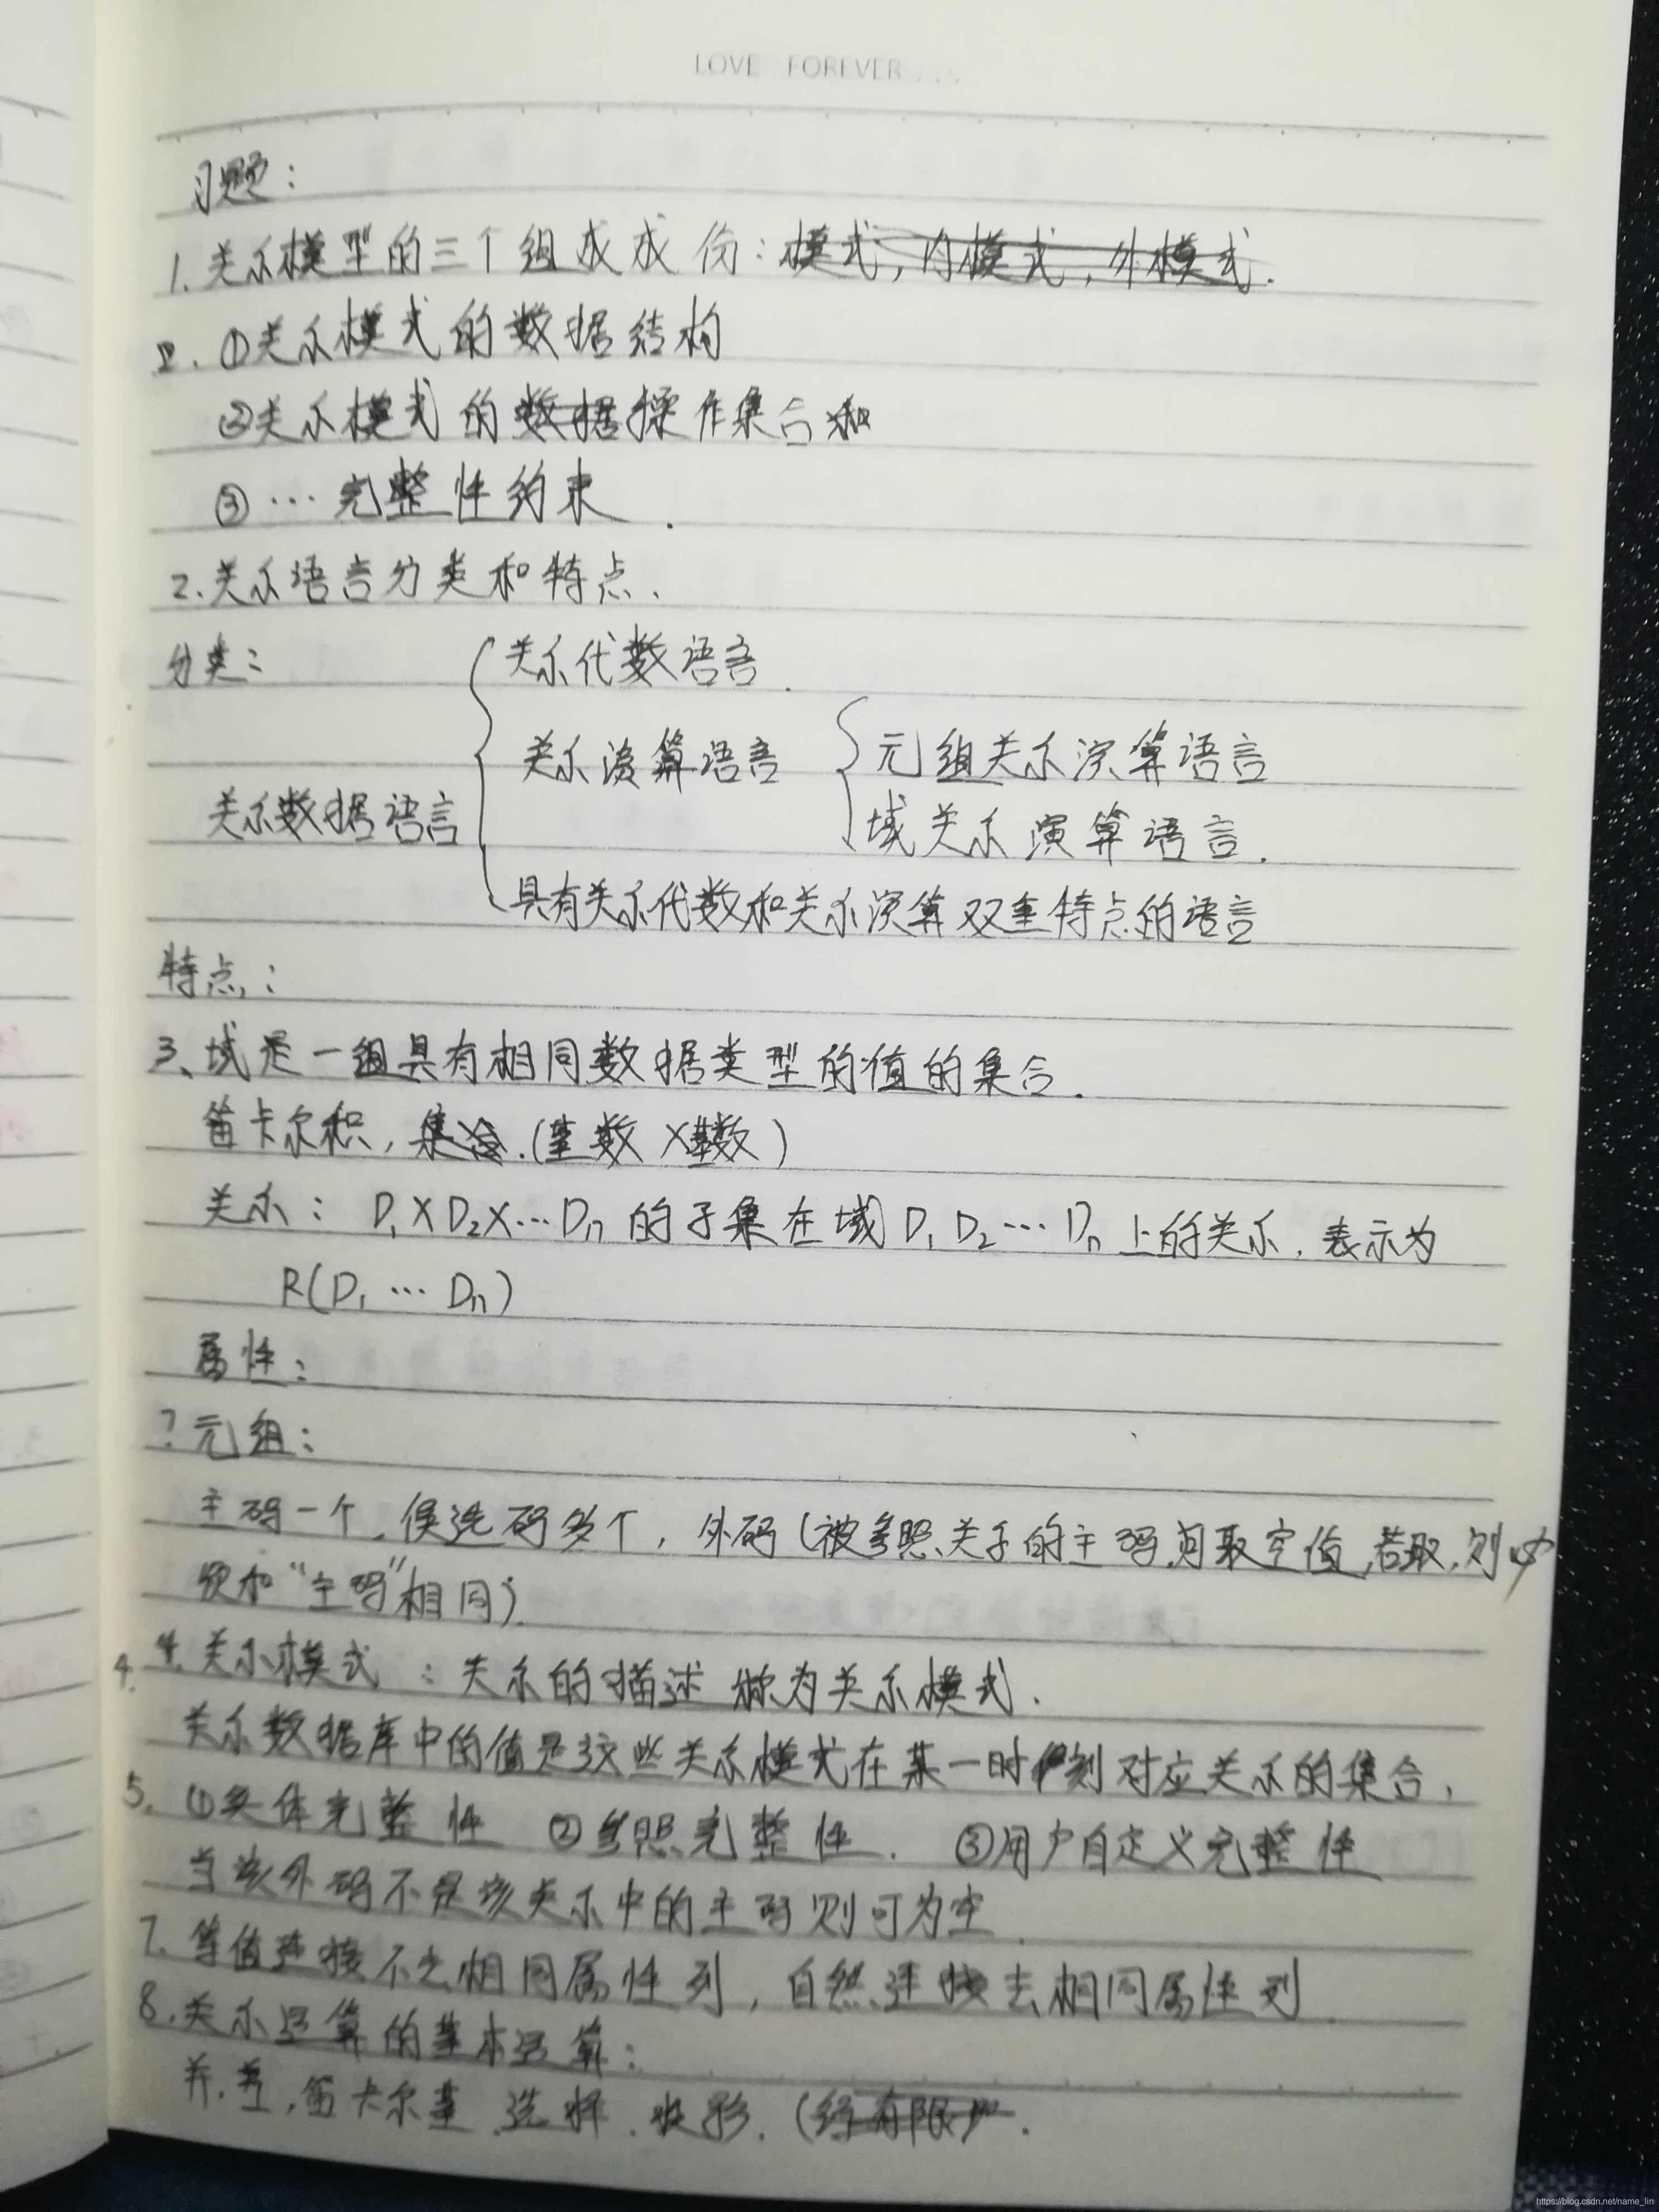 LOVE FOREVER...
习题：
1. 关系模型的三个组成成份：模式，内模式，外模式.
2. ①关系模式的数据结构
②关系模式的数据操作集合和
③…完整性约束.
2. 关系语言分类和特点.
分类：
关系代数语言.
关系演算语言
元组关系演算语言
关系数据语言
域关系演算语言.
具有关系代数和关系演算双重特点的语言
特点：
3、域是一组具有相同数据类型的值的集合.
笛卡尔积，集合.(基数×基数)
关系： D₁×D₂×…Dn 的子集在域D₁ D₂…Dn 上的关系. 表示为
R(D₁ … Dn)
属性：
? 元组：
主码一个，候选码多个，外码(被参照关系的主码,可取空值,若取,则必
须和“主码”相同).
4. 4. 关系模式：关系的描述称为关系模式.
关系数据库中的值是这些关系模式在某一时刻对应关系的集合,
5. ①实体完整性 ②参照完整性. ③用户自定义完整性
当该外码不是该关系中的主码则可为空.
7. 等值连接不去相同属性列，自然连接去相同属性列.
8. 关系运算的基本运算：
并.差,笛卡尔基.选择. 投影. (
https://blog.csdn.net/name_lin